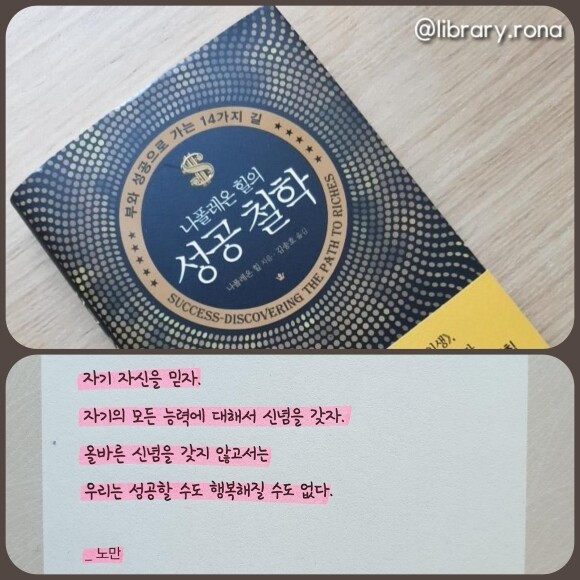 @library.rona
부와 성공으로 가는 14가지 길
$
나폴레온 힐의
성공 철학
나폴레온 힐 지음 · 김송호 옮김
SUCCESS-DISCOVERING THE PATH TO RICHES
자기 자신을 믿자.
자기의 모든 능력에 대해서 신념을 갖자.
올바른 신념을 갖지 않고서는
우리는 성공할 수도 행복해질 수도 없다.
_ 노만